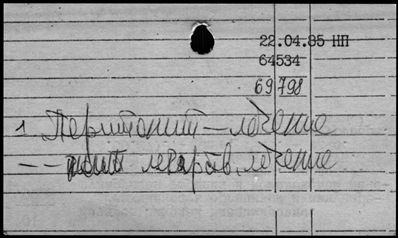 22.04.85 НП
64534
69798
1 Перитонит – лечение
–– лекарств. лечение